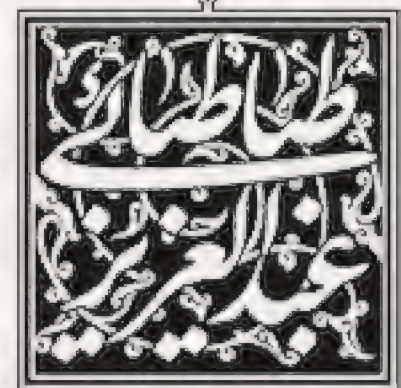 طباطبائی
عبد العزیز